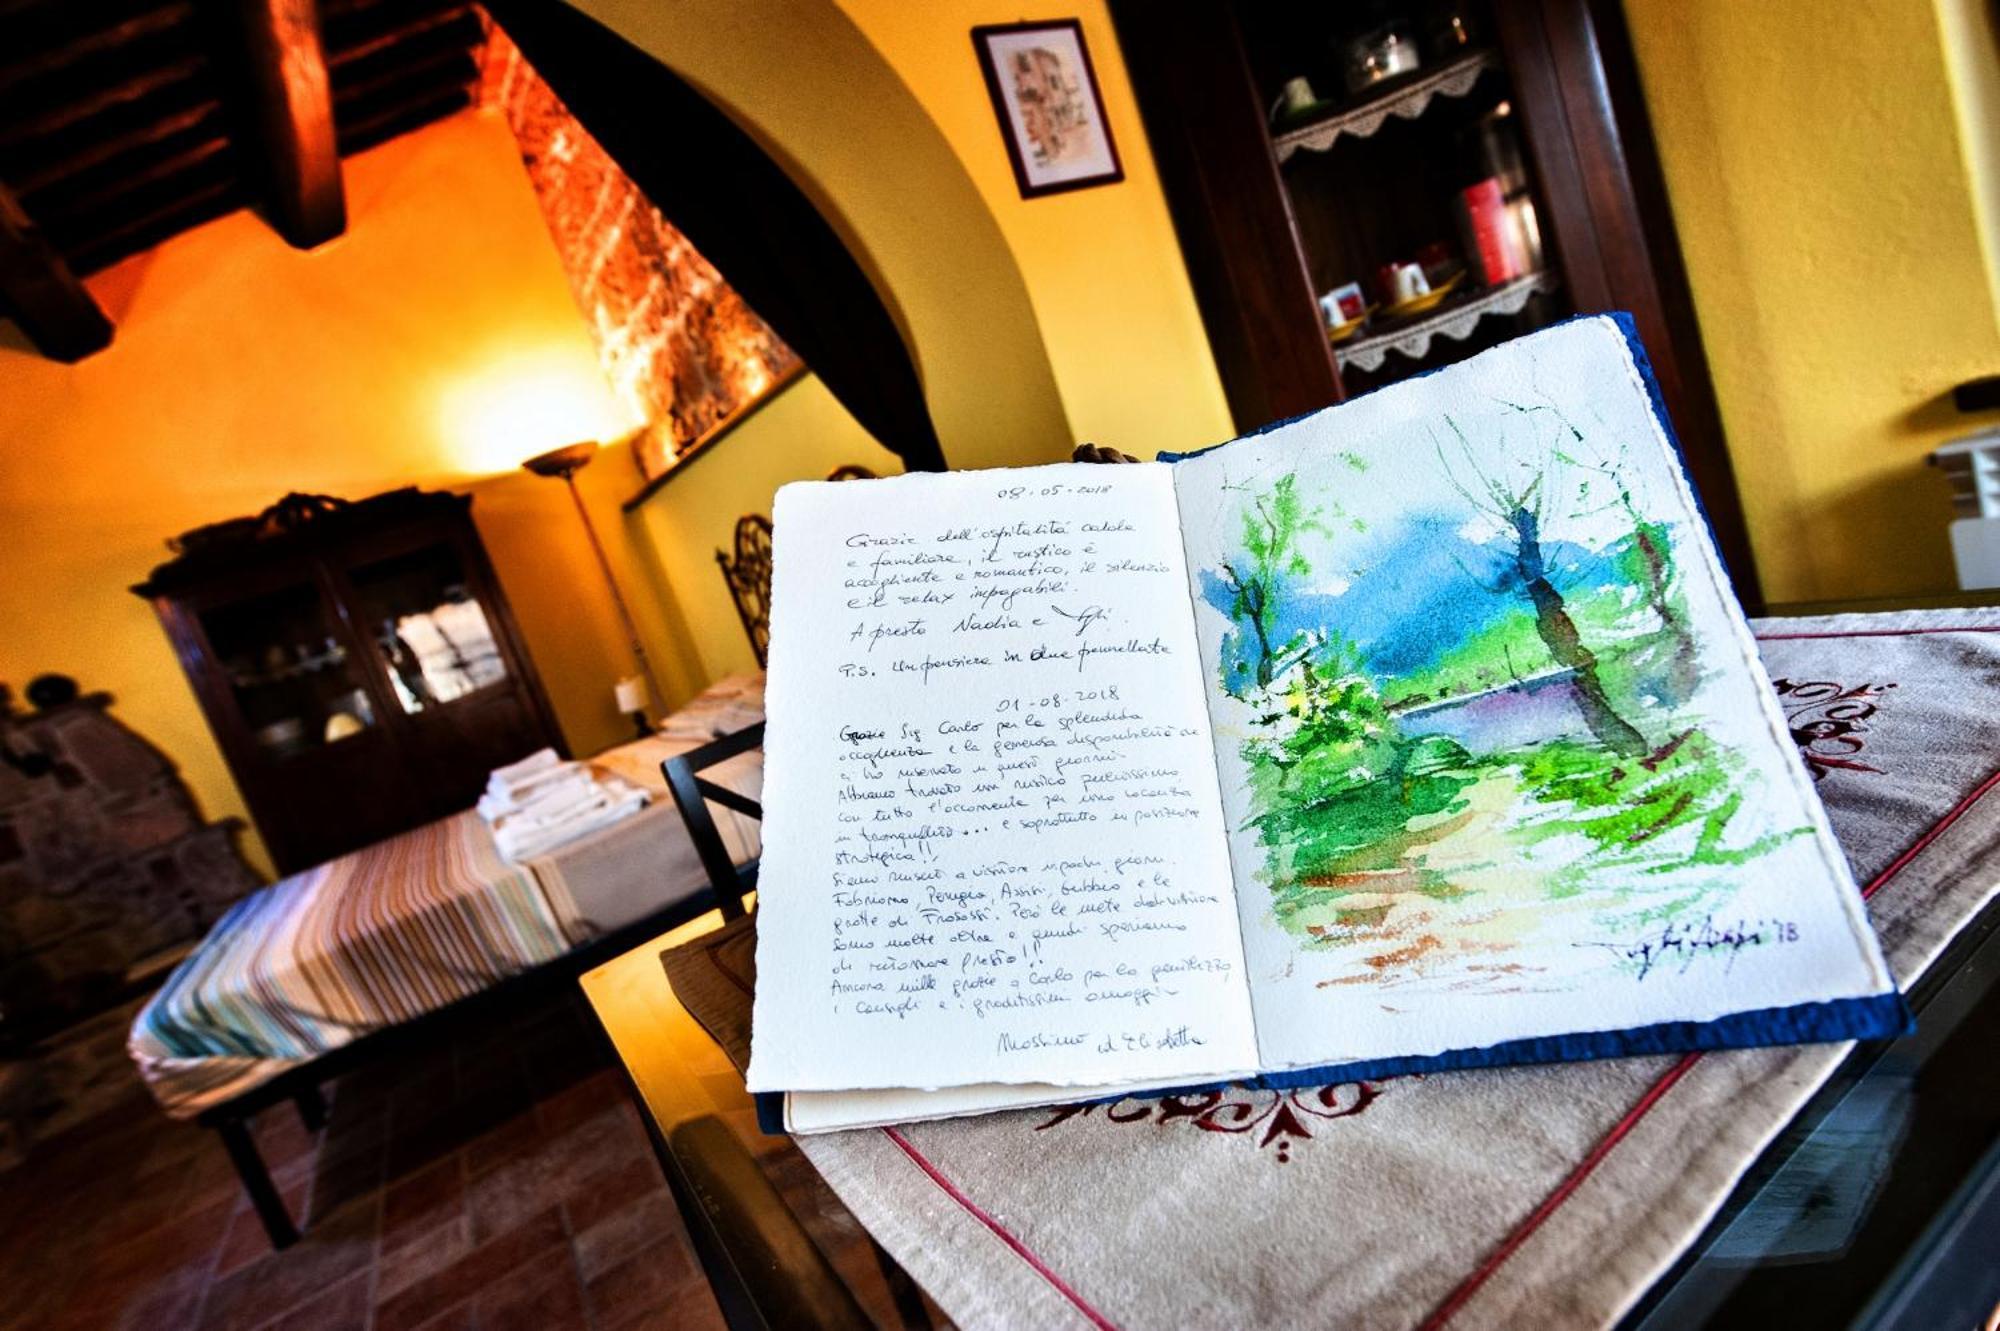 08.05.2018
Grazie dell'ospitalità calda
e familiare, il rustico è
accogliente e romantico, il silenzio
e il relax impagabili.
A presto Nadia e
P.S. Un pensiero in due pennellate
01-08-2018
Grazie Sig Carlo per la splendida
accoglienza e la generosa disponibilità che
ci ha riservato in questi giorni.
Abbiamo trovato un rustico pulitissimo
con tutto l'occorrente per una vacanza
in tranquillità... e soprattutto in posizione
strategica!!
Siamo riusciti a visitare in pochi giorni
Fabriano, Perugia, Assisi, Gubbio e le
grotte di Frasassi. Però le mete da visitare
sono molte altre e quindi speriamo
di ritornare presto!!
Ancora mille grazie a Carlo per la gentilezza,
i consigli e i graditissimi omaggi
Massimo ed Elisabetta
'18